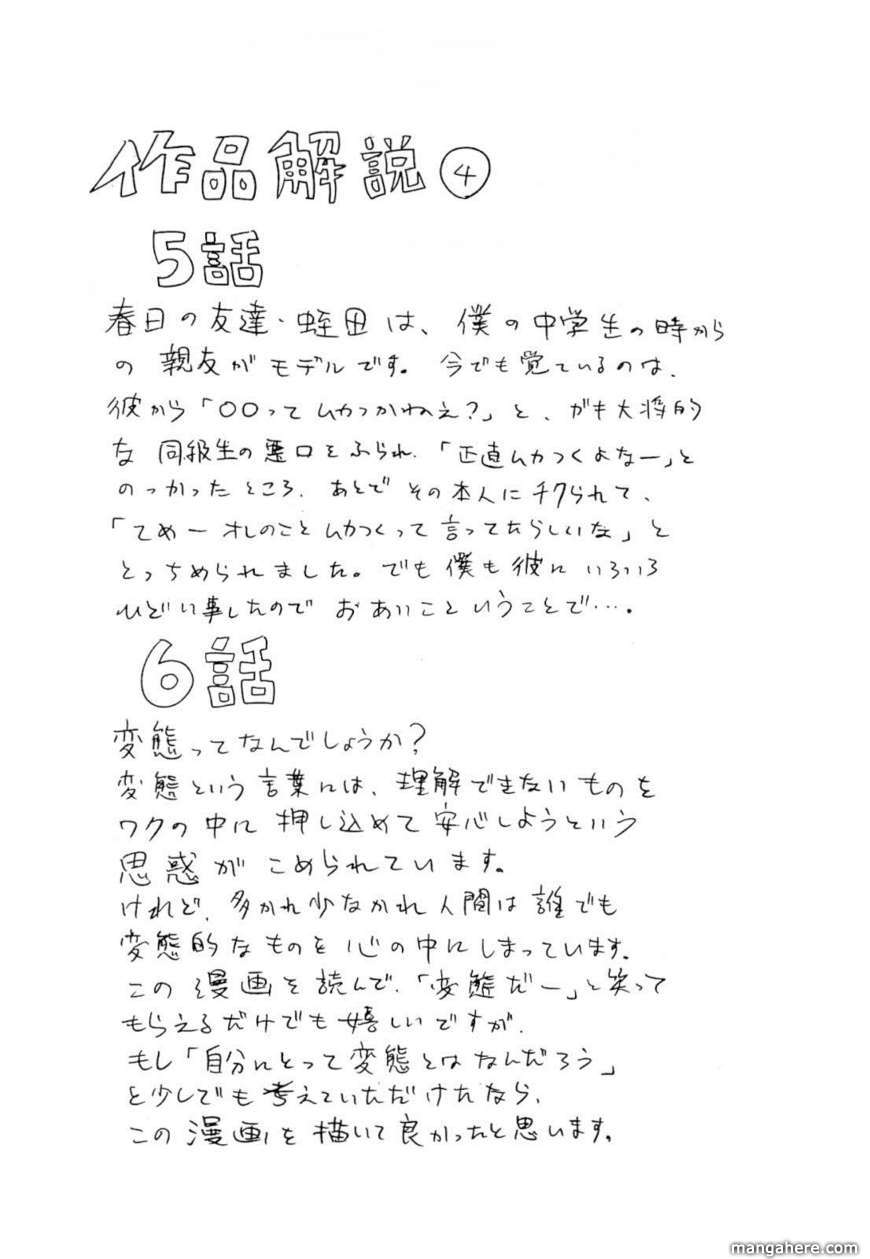 作品解説④
5話
春日の友達・蛭田は、僕の中学生の時から
の親友がモデルです。今でも覚えているのは、
彼から「〇〇ってムカつかねえ?」と、ガキ大将的
な同級生の悪口をふられ、「正直ムカつくよなー」と
のっかったところ、あとでその本人にチクられて、
「てめーオレのことムカつくって言ってたらしいな」と
とっちめられました。でも僕も彼にいろいろ
ひどい事したのでおあいこということで…。
6話
変態ってなんでしょうか?
変態という言葉には、理解できないものを
ワクの中に押し込めて安心しようという
思惑がこめられています。
けれど、多かれ少なかれ人間は誰でも
変態的なものを心の中にしまっています。
この漫画を読んで、「変態だー」と笑って
もらえるだけでも嬉しいですが、
もし「自分にとって変態とはなんだろう」
と少しでも考えていただけたなら、
この漫画を描いて良かったと思います。
mangahere.com